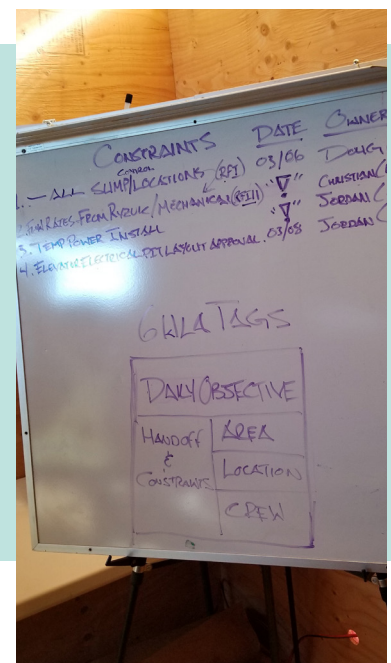 CONSTRAINTS DATE OWNER
1. - ALL SUMP/LOCATIONS (RFI) 03/06 DOUG
2. FROM RYZUK/MECHANICAL (RFI) "∇" CHRISTIAN
3. TEMP POWER INSTALL "∇" JORDAN
4. ELEVATOR ELECTRICAL PIT LAYOUT APPROVAL. 03/08 JORDAN
TAGS
DAILY OBJECTIVE
HANDOFF
&
CONSTRAINTS
AREA
LOCATION
CREW